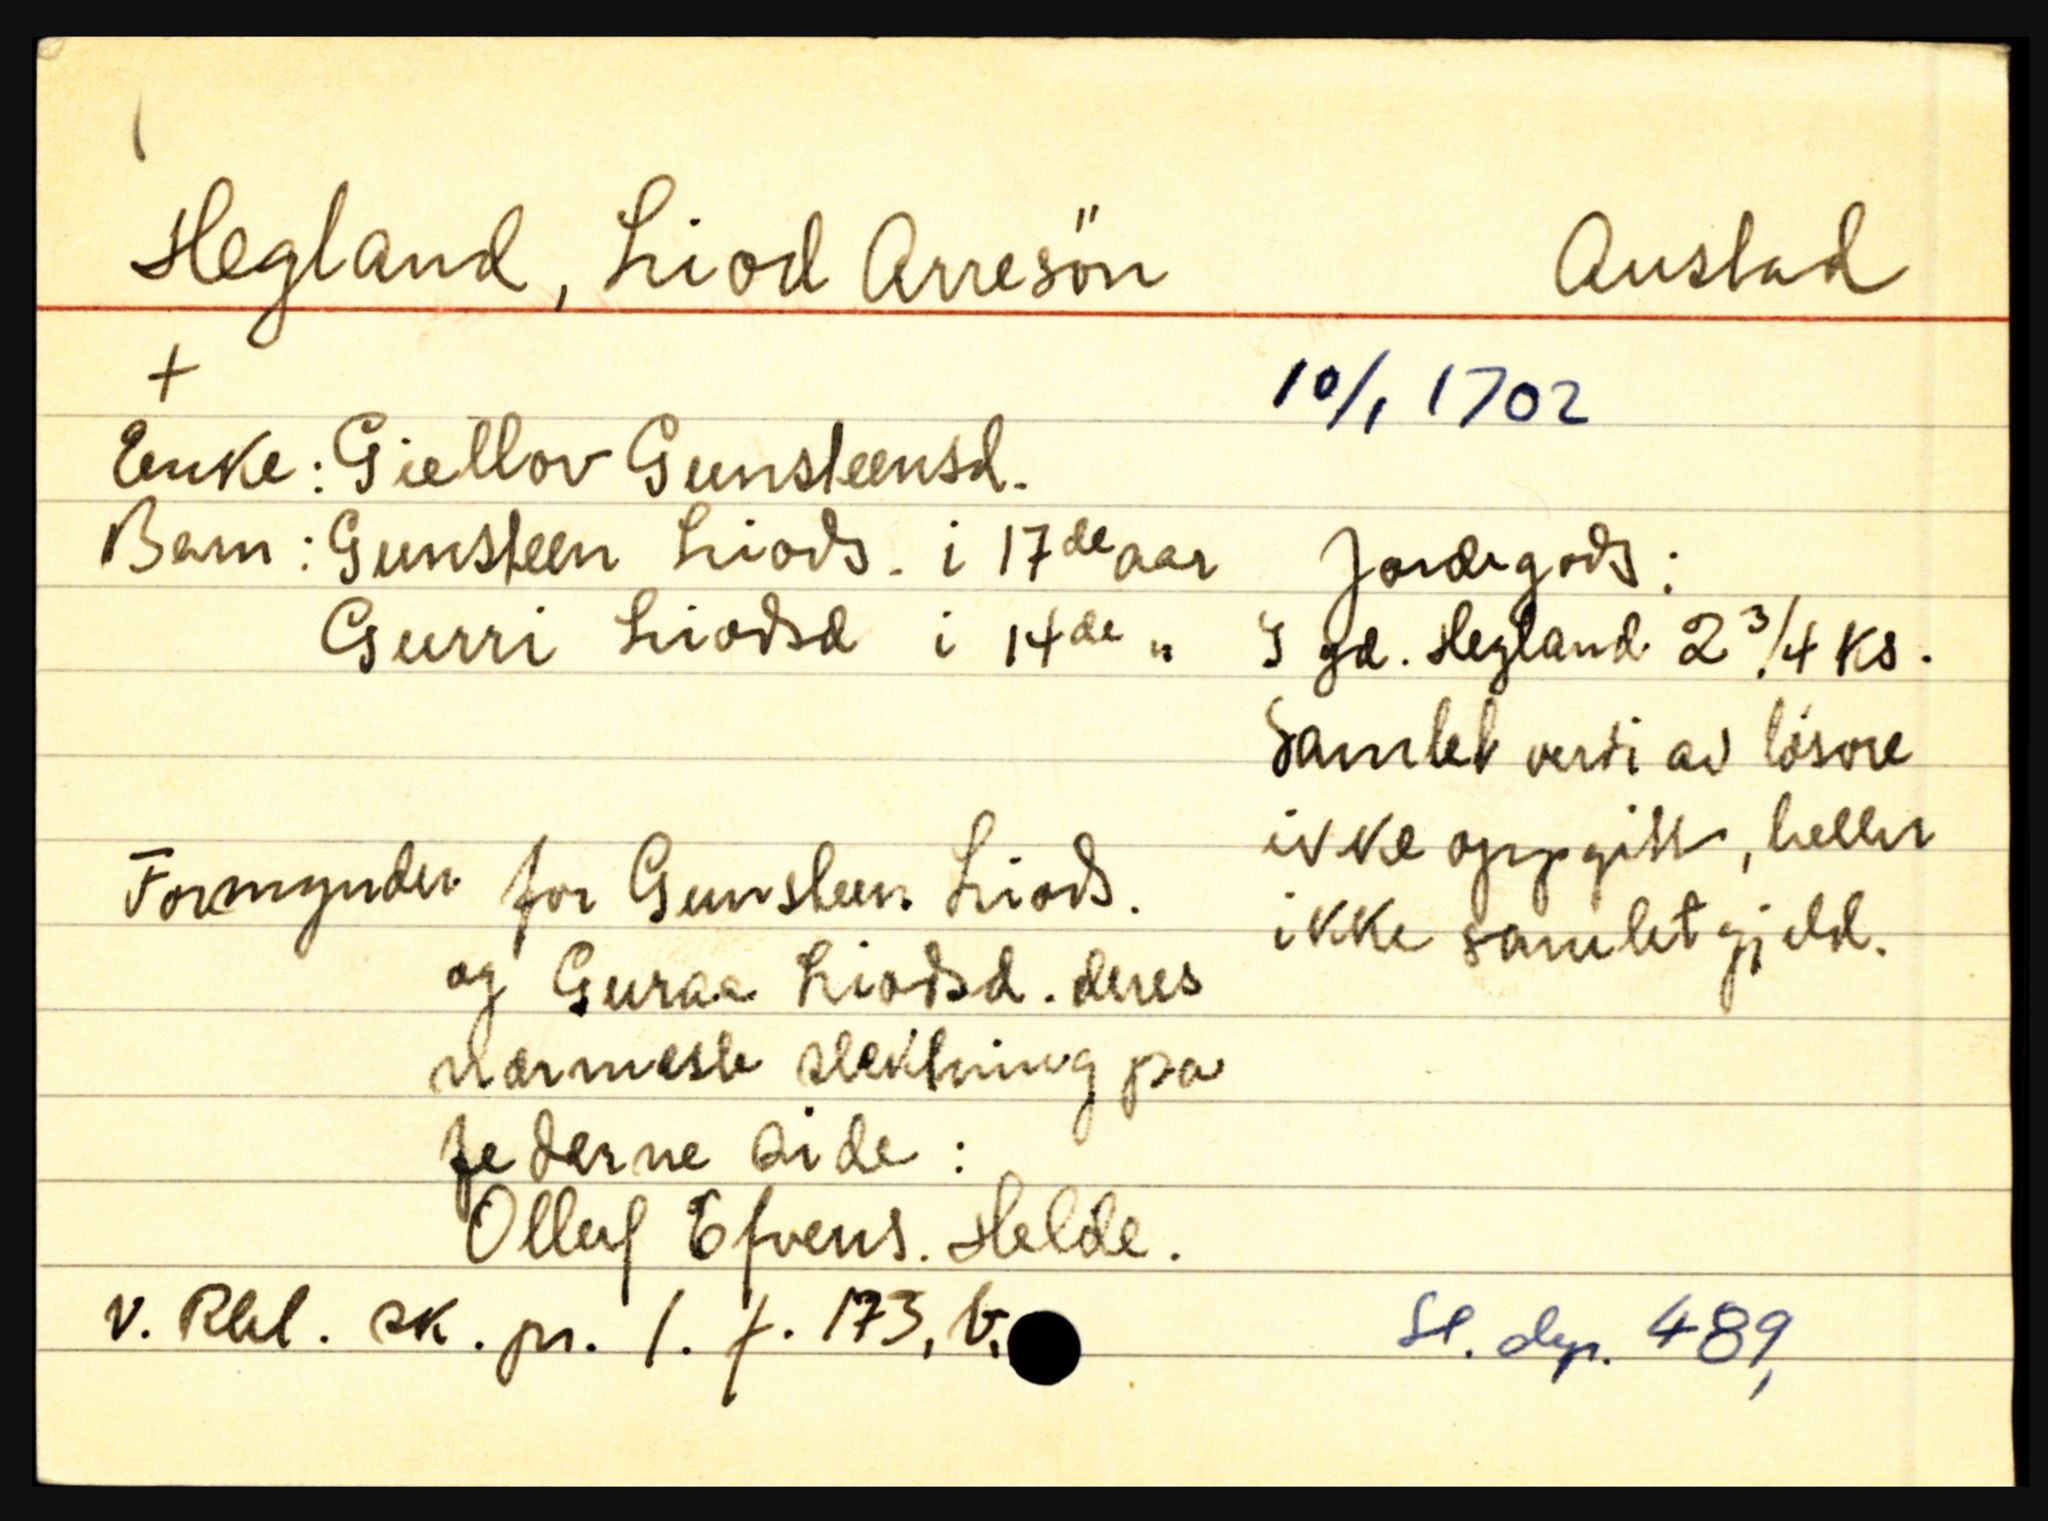 Hegland, Liod Arresön Austad
+ 10/1 1702
Enke: Giellov Gunsteensd.
Barn: Gunsteen Liods. i 17de aar
Gurri Liodsd i 14de "
Jordegods:
I gd. Hegland 2 3/4 ks.
Samlet verdi av lösöre
ikke oppgitt, heller
ikke samlet gjeld.
Formynder for Gunsteen Liods.
og Guraa Liodsd. deres
nærmeste slektning på
federne side:
Olluf Efvens. Helde.
v. Rbl. sk. pr. 1. f. 173, b.
St. dep. 489,